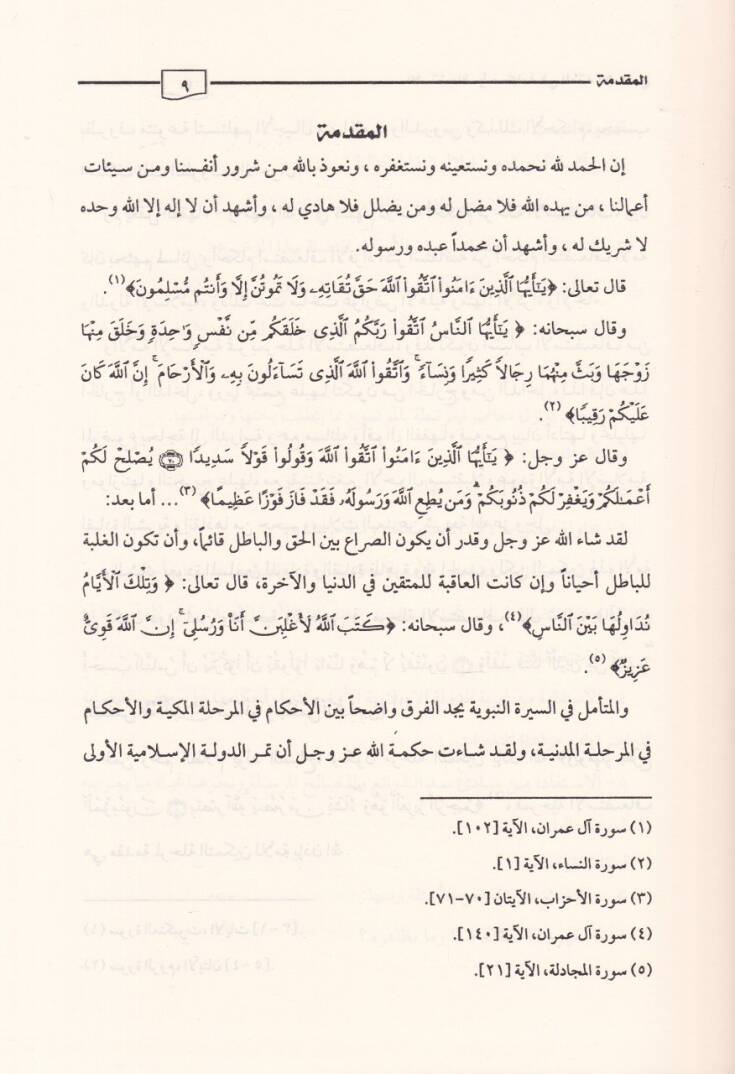 المقدمة ٩
المقدمة
إن الحمد لله نحمده ونستعينه ونستغفره ، ونعوذ بالله من شرور أنفسنا ومن سيئات
أعمالنا ، من يهده الله فلا مضل له ومن يضلل فلا هادي له ، وأشهد أن لا إله إلا الله وحده
لا شريك له ، وأشهد أن محمداً عبده ورسوله.
قال تعالى: ﴿يَٰٓأَيُّهَا ٱلَّذِينَ ءَامَنُوا۟ ٱتَّقُوا۟ ٱللَّهَ حَقَّ تُقَاتِهِۦ وَلَا تَمُوتُنَّ إِلَّا وَأَنتُم مُّسْلِمُونَ﴾(١).
وقال سبحانه: ﴿ يَٰٓأَيُّهَا ٱلنَّاسُ ٱتَّقُوا۟ رَبَّكُمُ ٱلَّذِى خَلَقَكُم مِّن نَّفْسٍ وَٰحِدَةٍ وَخَلَقَ مِنْهَا
زَوْجَهَا وَبَثَّ مِنْهُمَا رِجَالًا كَثِيرًا وَنِسَآءً ۚ وَٱتَّقُوا۟ ٱللَّهَ ٱلَّذِى تَسَآءَلُونَ بِهِۦ وَٱلْأَرْحَامَ ۚ إِنَّ ٱللَّهَ كَانَ
عَلَيْكُمْ رَقِيبًا﴾ (٢).
وقال عز وجل: ﴿ يَٰٓأَيُّهَا ٱلَّذِينَ ءَامَنُوا۟ ٱتَّقُوا۟ ٱللَّهَ وَقُولُوا۟ قَوْلًا سَدِيدًا ۝٧٠ يُصْلِحْ لَكُمْ
أَعْمَٰلَكُمْ وَيَغْفِرْ لَكُمْ ذُنُوبَكُمْ ۗ وَمَن يُطِعِ ٱللَّهَ وَرَسُولَهُۥ فَقَدْ فَازَ فَوْزًا عَظِيمًا﴾ (٣)... أما بعد:
لقد شاء الله عز وجل وقدر أن يكون الصراع بين الحق والباطل قائماً، وأن تكون الغلبة
للباطل أحياناً وإن كانت العاقبة للمتقين في الدنيا والآخرة، قال تعالى: ﴿ وَتِلْكَ ٱلْأَيَّامُ
نُدَاوِلُهَا بَيْنَ ٱلنَّاسِ﴾(٤)، وقال سبحانه: ﴿كَتَبَ ٱللَّهُ لَأَغْلِبَنَّ أَنَا۠ وَرُسُلِىٓ ۚ إِنَّ ٱللَّهَ قَوِىٌّ
عَزِيزٌ﴾ (٥).
والمتأمل في السيرة النبوية يجد الفرق واضحاً بين الأحكام في المرحلة المكية والأحكام
في المرحلة المدنية، ولقد شاءت حكمة الله عز وجل أن تمر الدولة الإسلامية الأولى
(١) سورة آل عمران، الآية [١٠٢].
(٢) سورة النساء، الآية [١].
(٣) سورة الأحزاب، الآيتان [٧٠-٧١].
(٤) سورة آل عمران، الآية [١٤٠].
(٥) سورة المجادلة، الآية [٢١].